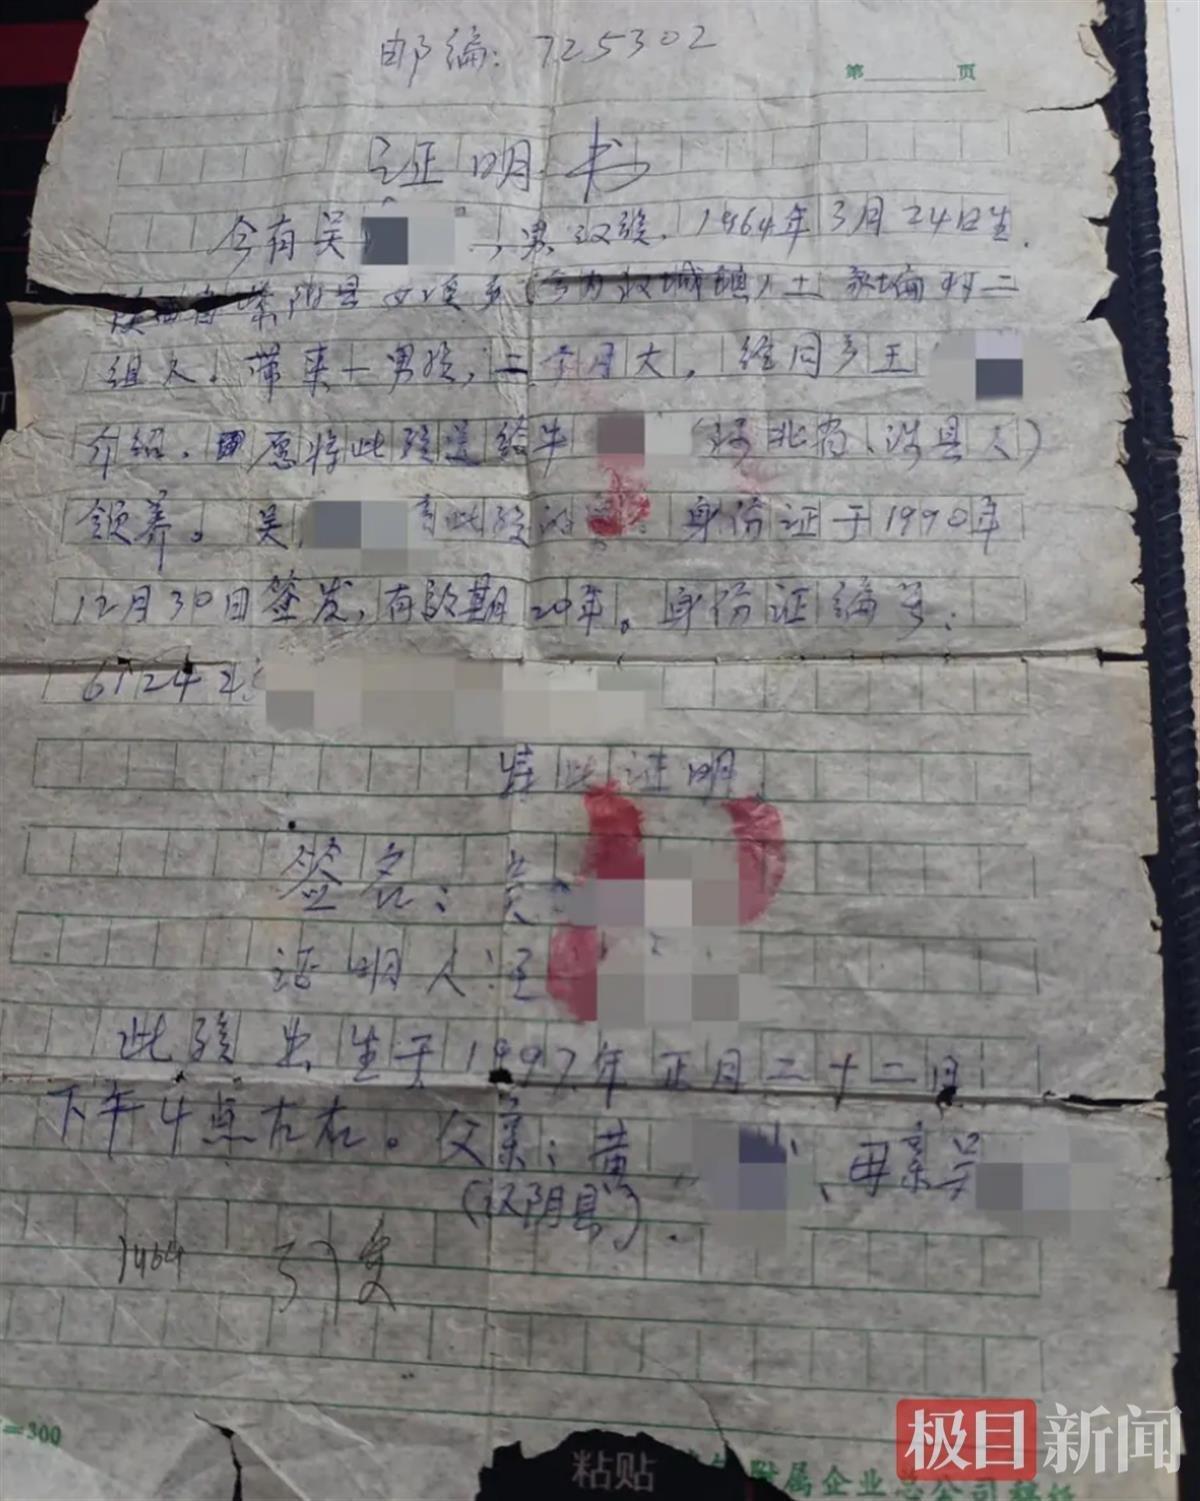 邮编：725302
第 页
证明书
今有吴 ，男 汉族，1964年3月24日生，
紫阳县 乡（今为 城镇）
组人。带来一男孩，二个月大，经同乡王
介绍。愿将此孩送给牛 （河北省、涉县人）
领养。吴 此孩 身份证于1990年
12月30日签发，有效期20年。身份证编号：
61242
特此证明
签名：吴
证明人：王
此孩出生于1997年正月二十二日
下午4点左右。父亲：黄 、母亲吴
（汉阴县）.
1464
=300
粘贴
附属企业总公司
极目新闻